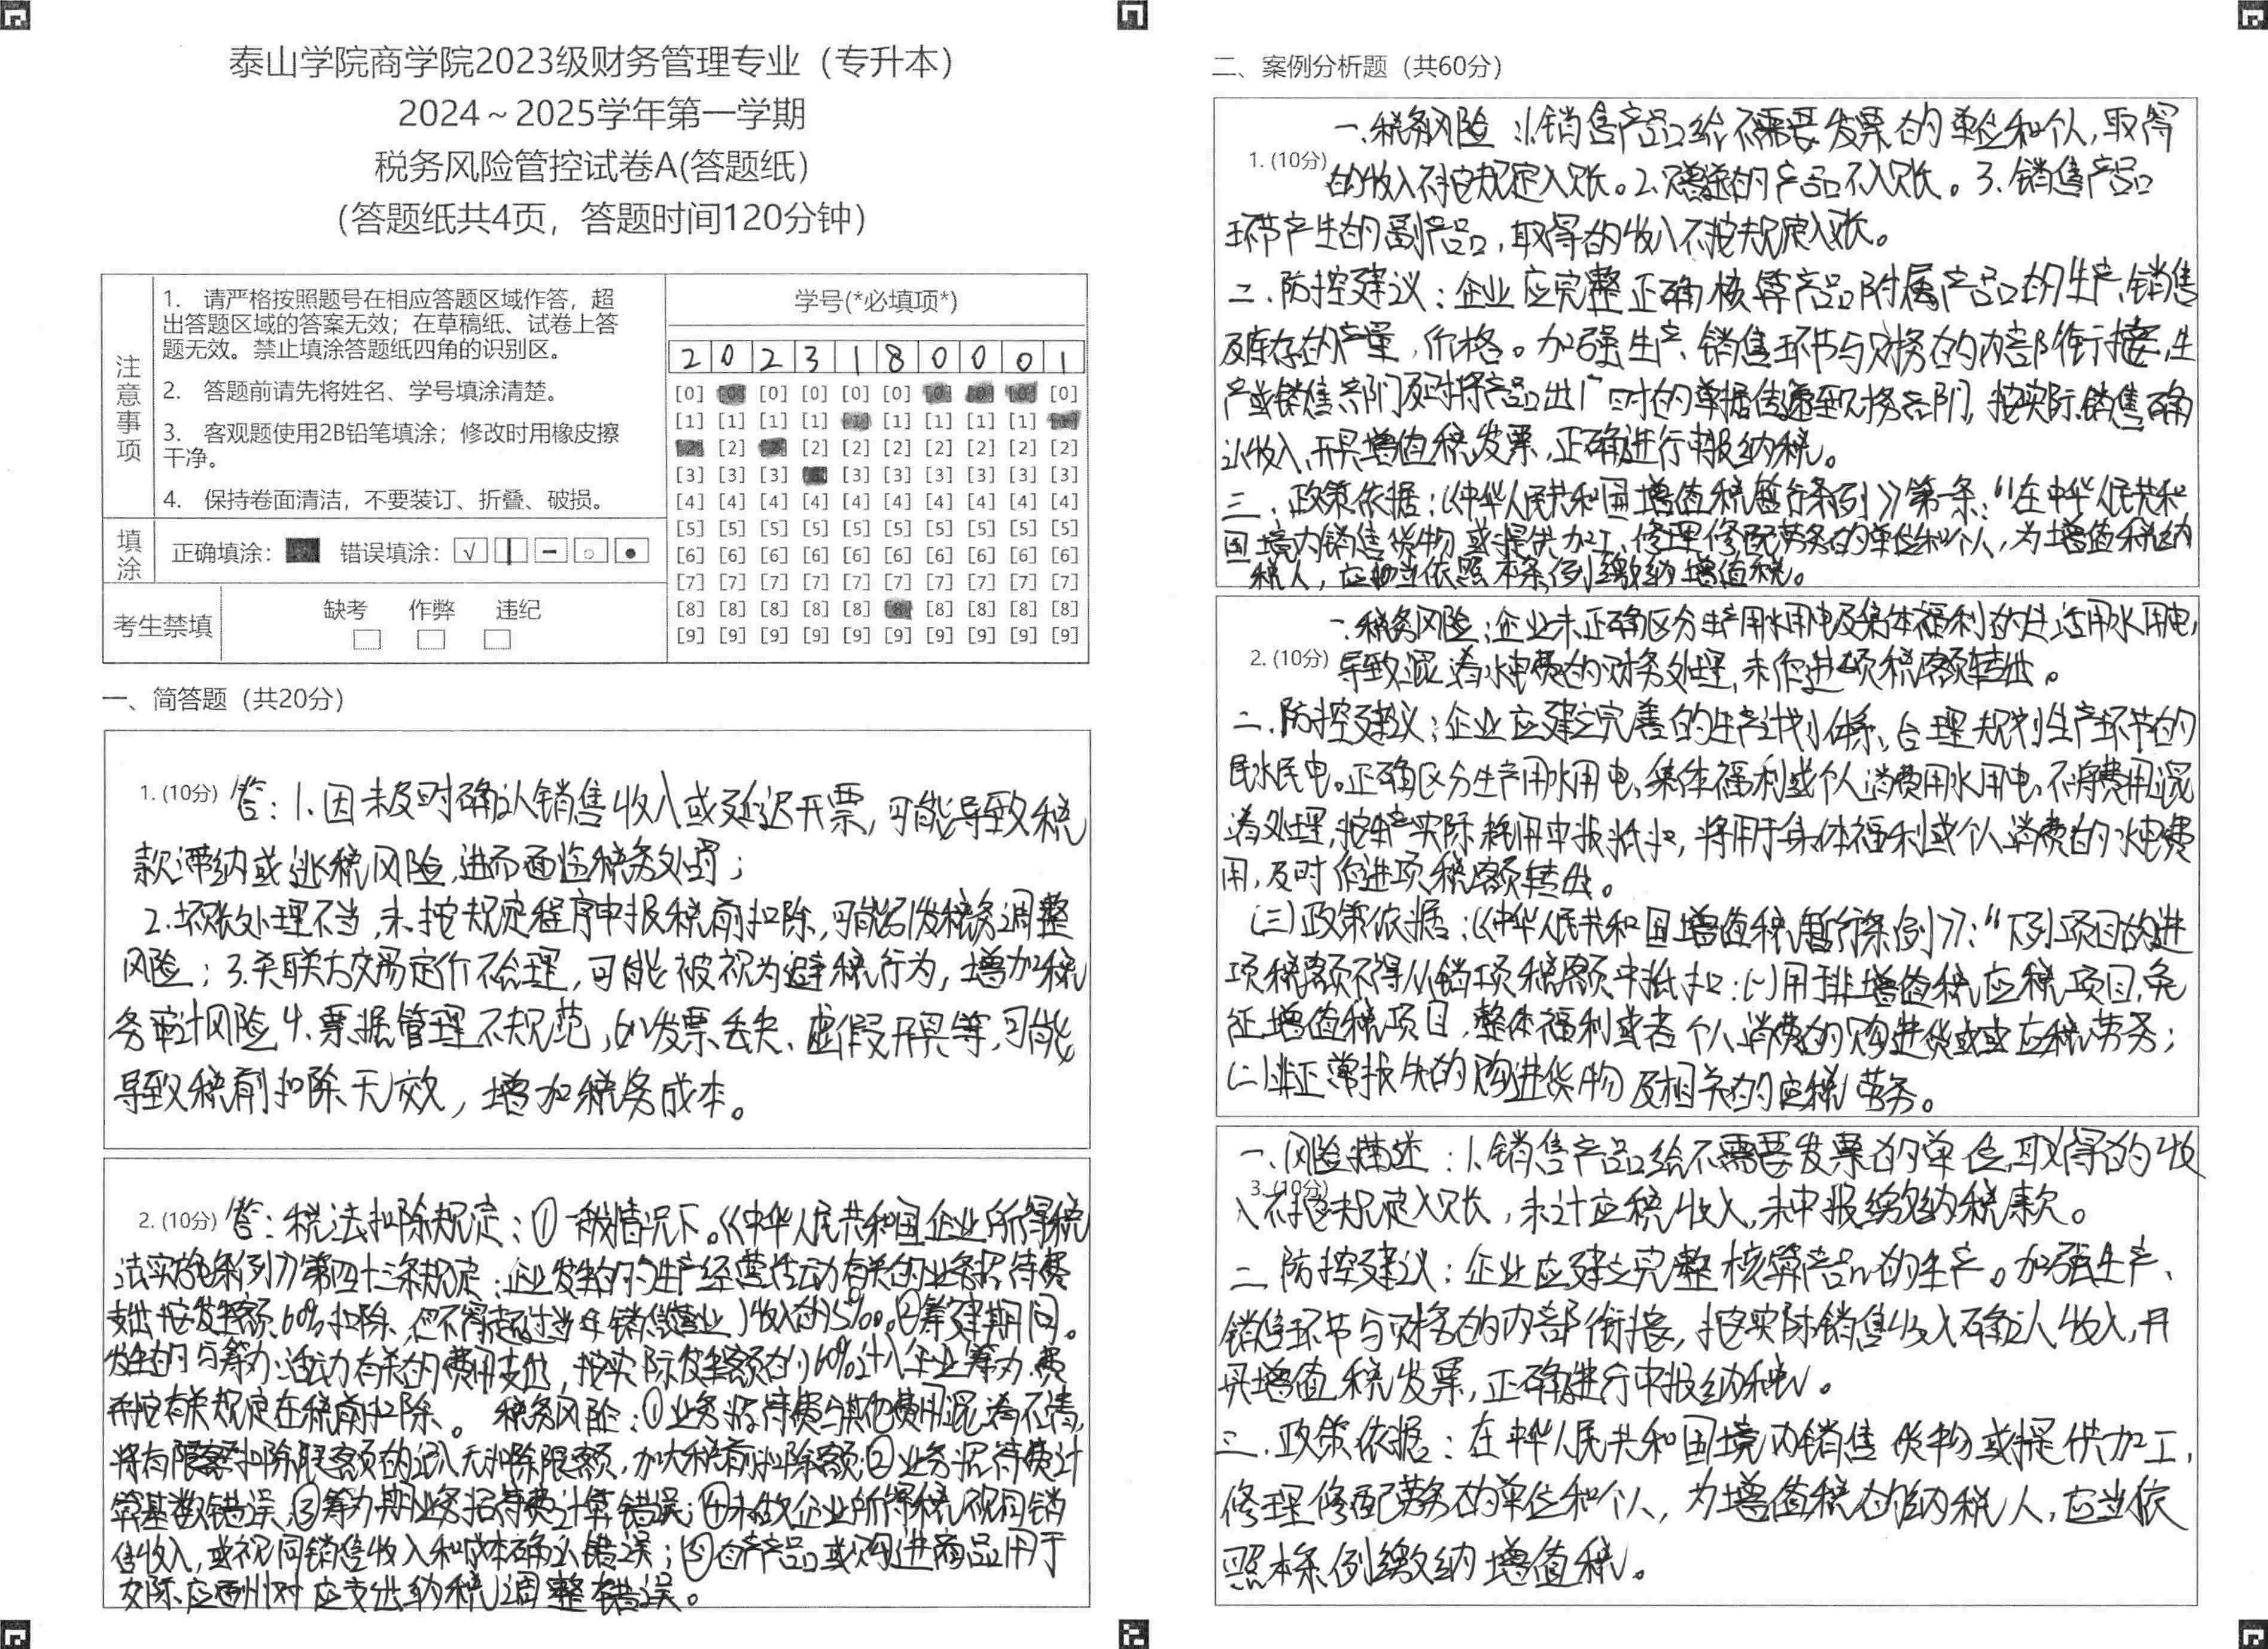 泰山学院商学院2023级财务管理专业（专升本）
2024～2025学年第一学期
税务风险管控试卷A(答题纸)
（答题纸共4页，答题时间120分钟）
注意事项
1. 请严格按照题号在相应答题区域作答，超
出答题区域的答案无效；在草稿纸、试卷上答
题无效。禁止填涂答题纸四角的识别区。
2. 答题前请先将姓名、学号填涂清楚。
3. 客观题使用2B铅笔填涂；修改时用橡皮擦
干净。
4. 保持卷面清洁，不要装订、折叠、破损。
填涂
正确填涂： 错误填涂：
考生禁填
缺考 作弊 违纪
学号(*必填项*)
2 0 2 3 1 8 0 0 0 1
[0] [0] [0] [0] [0] [0] [0] [0] [0] [0]
[1] [1] [1] [1] [1] [1] [1] [1] [1] [1]
[2] [2] [2] [2] [2] [2] [2] [2] [2] [2]
[3] [3] [3] [3] [3] [3] [3] [3] [3] [3]
[4] [4] [4] [4] [4] [4] [4] [4] [4] [4]
[5] [5] [5] [5] [5] [5] [5] [5] [5] [5]
[6] [6] [6] [6] [6] [6] [6] [6] [6] [6]
[7] [7] [7] [7] [7] [7] [7] [7] [7] [7]
[8] [8] [8] [8] [8] [8] [8] [8] [8] [8]
[9] [9] [9] [9] [9] [9] [9] [9] [9] [9]
一、简答题（共20分）
1. (10分) 答：1.因未及时确认销售收入或延迟开票，可能导致税
款滞纳或逃税风险，进而面临税务处罚；
2.坏账处理不当，未按规定程序申报税前扣除，可能引发税务调整
风险；3.关联方交易定价不合理，可能被视为避税行为，增加税
务审计风险 4.票据管理不规范，如发票丢失、虚假开具等，可能
导致税前扣除无效，增加税务成本。
2. (10分) 答：税法扣除规定：①一般情况下。《中华人民共和国企业所得税
法实施条例》第四十三条规定：企业发生的与生产经营活动有关的业务招待费
支出按发生额60%扣除、但不得超过当年销售(营业)收入的5‰。②筹建期间。
发生的与筹办活动有关的费用支出，按实际发生额的60%计入企业筹办费
并按有关规定在税前扣除。 税务风险：①业务招待费与其他费用混淆不清，
将有限额扣除限额的记入无扣除限额，加大税前扣除额②业务招待费计
算基数错误③筹办期业务招待费计算错误；④未做企业所得税视同销
售收入，或视同销售收入和成本确认错误；⑤自产产品或购进商品用于
交际应酬对应支出纳税调整错误。
二、案例分析题（共60分）
一.税务风险：1.销售产品给不需要发票的单位和个人，取得
1. (10分) 的收入不按规定入账。2.赠送的产品不入账。3.销售产品
环节产生的副产品，取得的收入不按规定入账。
二.防控建议：企业应完整正确核算产品附属产品的生产、销售
及库存的产量，价格。加强生产、销售环节与财务的内部衔接，生
产或销售部门及时将产品出厂时的单据传递至财务部门，按实际销售确
认收入、开具增值税发票，正确进行申报纳税。
三.政策依据：《中华人民共和国增值税暂行条例》第一条："在中华人民共和
国境内销售货物或提供加工、修理修配劳务的单位和个人，为增值税纳
税人，应当依照本条例缴纳增值税。
一.税务风险：企业未正确区分生产用水用电及集体福利的生活用水用电，
2. (10分) 导致混淆水电费的财务处理，未作进项税额转出。
二.防控建议：企业应建立完善的生产计划体系，合理规划生产环节的
用水用电。正确区分生产用水用电、集体福利或个人消费用水用电、不将费用混
淆处理，按生产实际耗用申报抵扣，将用于集体福利或个人消费的水电费
用，及时作进项税额转出。
(三)政策依据：《中华人民共和国增值税暂行条例》："下列项目的进
项税额不得从销项税额中抵扣：(一)用于非增值税应税项目、免
征增值税项目，集体福利或者个人消费的购进货或或应税劳务；
(二)非正常损失的购进货物及相关的应税劳务。
一、风险描述：1.销售产品给不需要发票的单位，取得的收
3. (10分)
入不按规定入账，未计应税收入，未申报缴纳税款。
二 防控建议：企业应建立完整核算产品的生产。加强生产、
销售环节与财务的内部衔接，按实际销售收入确认收入，开
具增值税发票，正确进行申报纳税。
三.政策依据：在中华人民共和国境内销售货物或提供加工，
修理修配劳务的单位和个人，为增值税的纳税人，应当依
照本条例缴纳增值税。